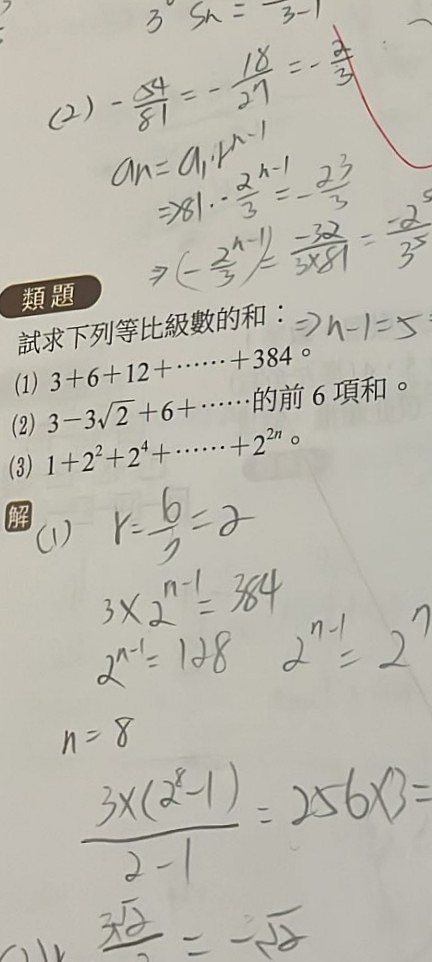 3° Sn = 3-1
(2) -54/81 = -18/27 = -2/3
an = a₁·r^(n-1)
⇒81·-2/3^(n-1) = -2³/3
⇒(-2/3^(n-1)) = -32/(3×81) = -2⁵/3⁵
類題
試求下列等比級數的和: ⇒n-1=5
(1) 3+6+12+……+384。
(2) 3-3√2+6+……的前 6 項和。
(3) 1+2²+2⁴+……+2²ⁿ。
解
(1) r=6/3=2
3×2^(n-1)=384
2^(n-1)=128 2^(n-1)=2⁷
n=8
3×(2⁸-1)/(2-1) = 256×3=
3√2 = -√2